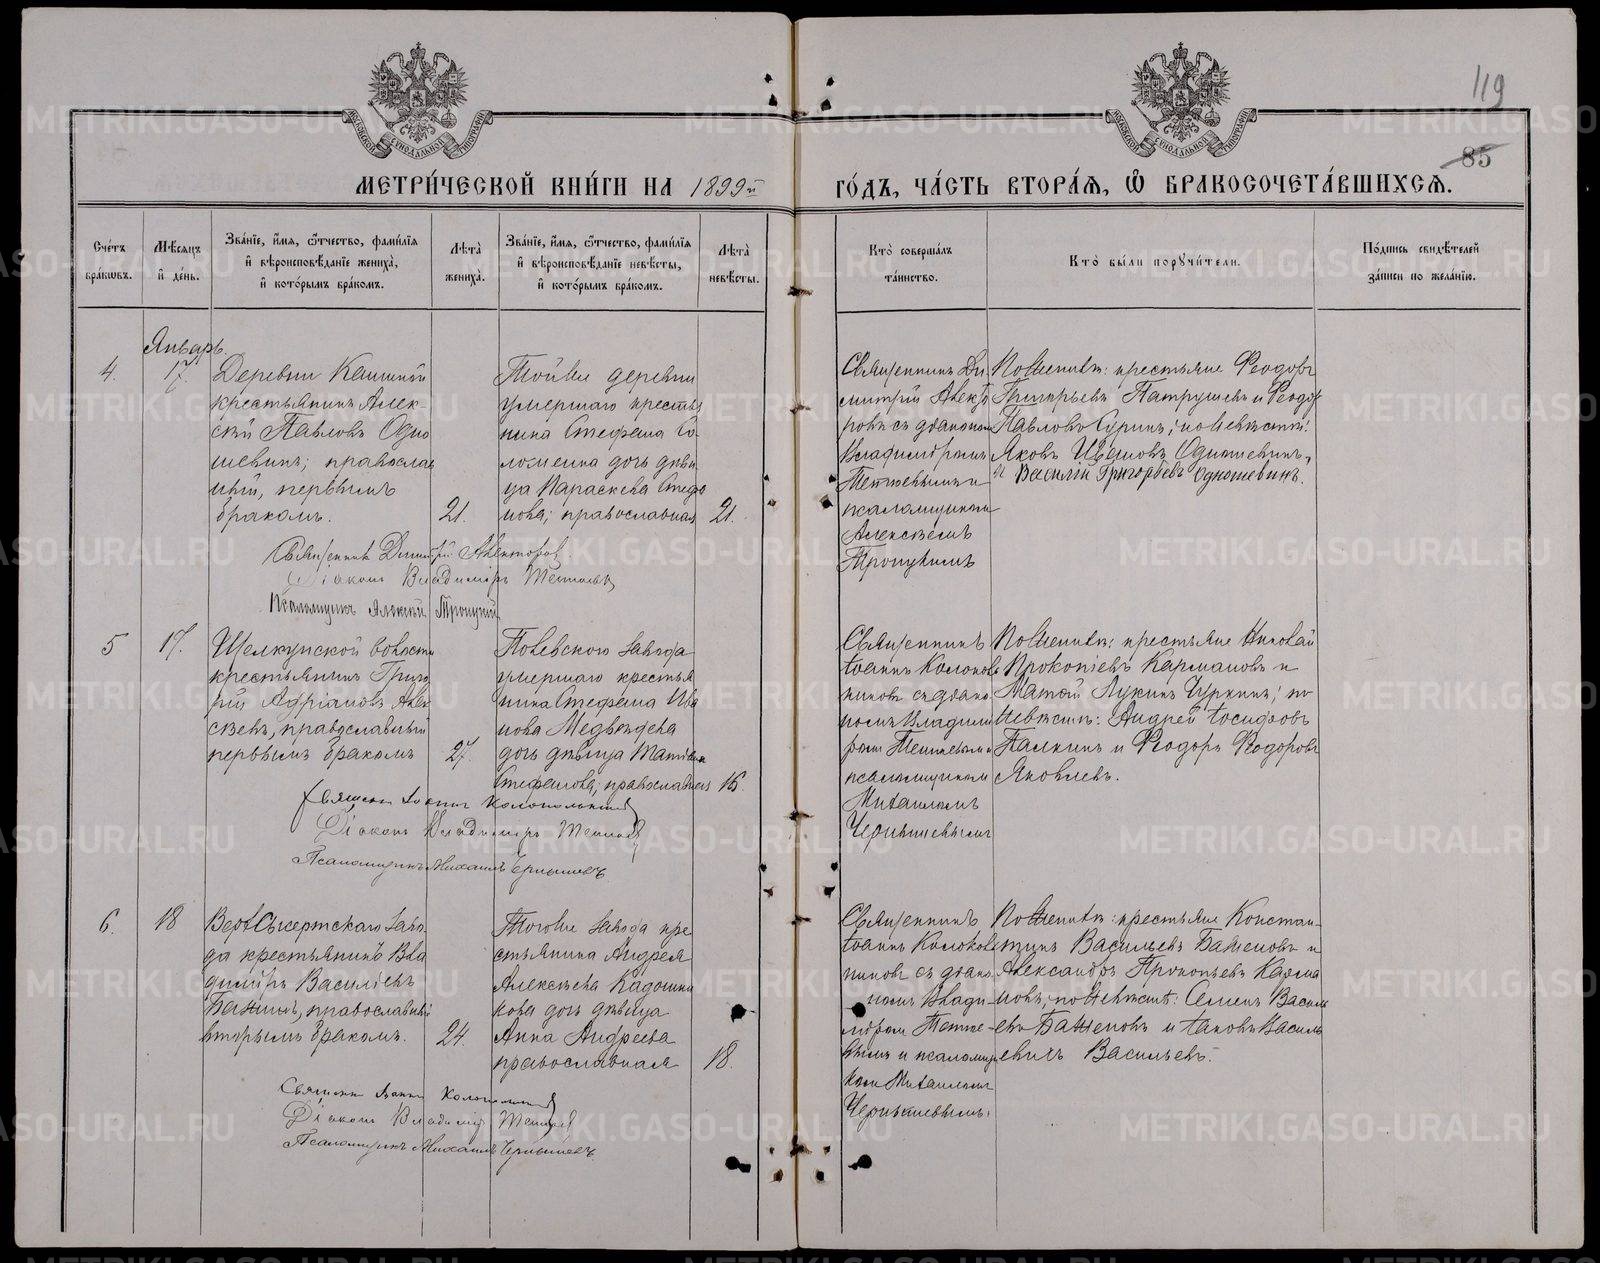 119
85
МЕТРИ́ЧЕСКОЙ КНИ́ГИ НА 1899й ГО́ДЪ, ЧА́СТЬ ВТОРА́Я, Ѽ БРАКОСОЧЕТА́ВШИХСЯ.
Счётъ бра́кѡвъ.
Мѣсяцъ и҆ де́нь.
Зва́нїе, и҆́мя, ѻ҆́тчество, фами́лїя и҆ вѣроисповѣ́данїе жениха̀, и҆ кото́рымъ бра́комъ.
Лѣта̀ жениха̀.
Зва́нїе, и҆́мя, ѻ҆́тчество, фами́лїя и҆ вѣроисповѣ́данїе невѣ́сты, и҆ кото́рымъ бра́комъ.
Лѣта̀ невѣ́сты.
Кто̀ соверша́лъ та́инство.
Кто̀ бы́ли порꙋчи́тели.
По́дпись свидѣ́телей за́писи по жела́нїю.
Январь
4.
17.
Деревни Кашиной
крестьянинъ Алек-
сѣй Павловъ Одно
шевинъ; православ
ный, первымъ
бракомъ.
21.
Тойже деревни
умершаго крестья
нина Стефана Со
ломеина дочь дѣви
ца Параскева Стефа
нова; православная
21.
Священникъ Ди
митрій Алекто
ровъ съ діакономъ
Владиміромъ
псаломщикомъ
Алексѣемъ
Троицкимъ
По женихѣ: крестьяне Ѳеодоръ
Григорьевъ Патрушевъ и Ѳеодоръ
Павловъ Суринъ; по невѣстѣ:
Яковъ Ивановъ Одношевинъ,
и Василій Григорьевъ Одношевинъ.
Священникъ Димитрій Алекторовъ
Діаконъ Владиміръ
Псаломщикъ Алексѣй Троицкій
5
17.
Щелкунской волости
крестьянинъ Григо
рій Адріановъ Алек
сѣевъ, православный
первымъ бракомъ
27.
Полевскаго завода
умершаго крестья
нина Стефана Ива
нова Медвѣдева
дочь дѣвица Татіана
Стефанова; православная
16.
Священникъ
Іоаннъ Колоколь
никовъ съ діако
номъ Владимі
псаломщикомъ
Михаиломъ
Чернышевымъ
По женихѣ: крестьяне Николай
Прокопіевъ Кармановъ и
Матѳій Лукинъ Чуркинъ; по
невѣстѣ: Андрей Іосифовъ
Палкинъ и Ѳеодоръ Ѳеодоровъ
Яковлевъ.
Священн. Іоаннъ Колокольниковъ
Діаконъ Владиміръ
Псаломщикъ Михаилъ Чернышевъ
6.
18
Верхсысертскаго заво
да крестьянинъ Вла
диміръ Василіевъ
православный
вторымъ бракомъ.
24.
Тогоже завода кре
стьянина Андрея
Алексѣева Кадошни
кова дочь дѣвица
Анна Андреева
православная
18.
Священникъ
Іоаннъ Колоколь
никовъ съ діако
номъ Влади
міромъ
и псаломщи
комъ Михаиломъ
Чернышевымъ.
По женихѣ: крестьяне Констан-
тинъ Васильевъ Баженовъ и
Александръ Прокопьевъ Карма
новъ; по невѣстѣ: Семенъ Василь
евъ Баженовъ и Іаковъ Василь
евичъ Васильевъ.
Священн. Іоаннъ Колокольниковъ
Діаконъ Владиміръ
Псаломщикъ Михаилъ Чернышевъ.
METRIKI.GASO-URAL.RU